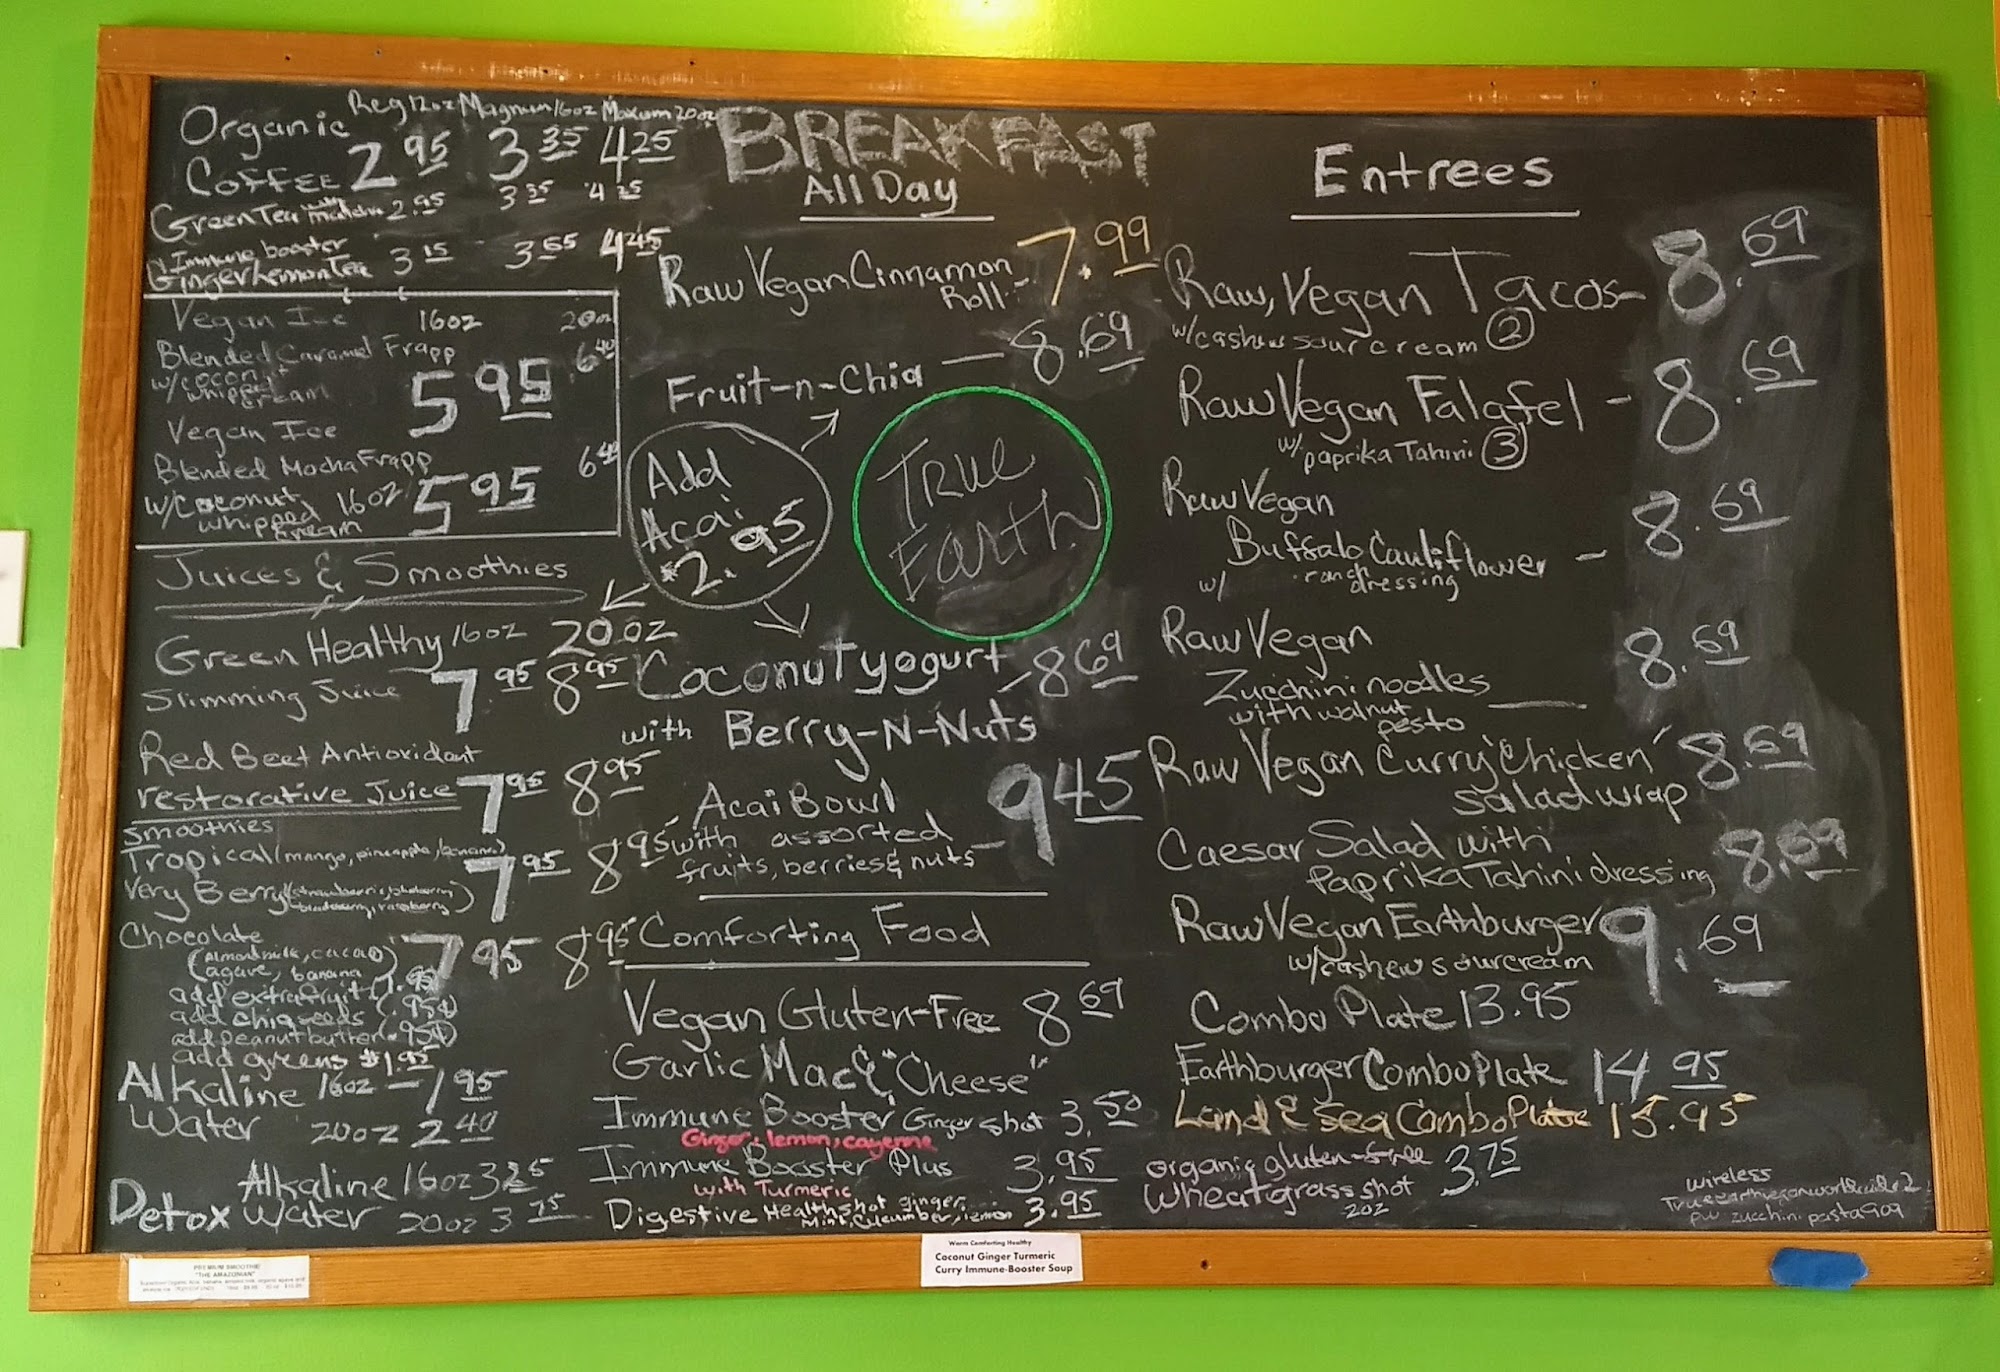 Reg 12oz Magnum 16oz Maxum 20oz
Organic
Coffee 2.95 3.35 4.25
Green Tea with matcha 2.95 3.35 4.25
Immune booster
Ginger Lemon Tea 3.15 3.65 4.45
Vegan Ice 16oz 20oz
Blended Caramel Frapp 6.40
w/coconut whipped cream 5.95
Vegan Ice
Blended Mocha Frapp 6.40
w/Coconut 16oz 5.95
whipped cream
Juices & Smoothies
Green Healthy 16oz 20oz
Slimming Juice 7.95 8.95
Red Beet Antioxidant
restorative Juice 7.95 8.95
Smoothies
Tropical (mango, pineapple, banana) 7.95 8.95
Very Berry (strawberries, blueberry,
blackberry, raspberry)
Chocolate 7.95 8.95
(Almond milk, cacao)
(agave, banana
add extra fruit (1.95)
add chia seeds (.95¢)
add peanut butter (.95¢)
add greens $1.95
Alkaline 16oz — 1.95
Water 20oz 2.40
Detox Alkaline 16oz 3.25
Water 20oz 3.75
BREAKFAST
All Day
Raw Vegan Cinnamon
Roll - 7.99
Fruit-n-Chia — 8.69
Add
Acai
$2.95
True
Earth
Coconut yogurt - 8.69
with Berry-N-Nuts
Acai Bowl
with assorted
fruits, berries & nuts - 9.45
Comforting Food
Vegan Gluten-Free 8.69
Garlic Mac & "Cheese"
Immune Booster Ginger shot 3.50
Ginger, lemon, cayenne
Immune Booster Plus 3.95
with Turmeric
Digestive Health shot ginger,
Mint, Cucumber, lemon 3.95
Entrees
Raw, Vegan Tacos - 8.69
w/cashew sour cream 2
Raw Vegan Falafel - 8.69
w/ paprika Tahini 3
Raw Vegan
Buffalo Cauliflower - 8.69
w/ ranch dressing
Raw Vegan
Zucchini noodles — 8.69
with walnut
pesto
Raw Vegan Curry "Chicken" 8.69
salad wrap
Caesar Salad with
Paprika Tahini dressing 8.69
Raw Vegan Earthburger 9.69
w/cashew sour cream
Combo Plate 13.95
Earthburger Combo Plate 14.95
Land & Sea Combo Plate 15.95
organic gluten-free
wheatgrass shot 3.75
2oz
wireless
pw zucchini pasta909
PREMIUM SMOOTHIE!
"THE AMAZONIAN"
Warm Comforting Healthy
Coconut Ginger Turmeric
Curry Immune-Booster Soup